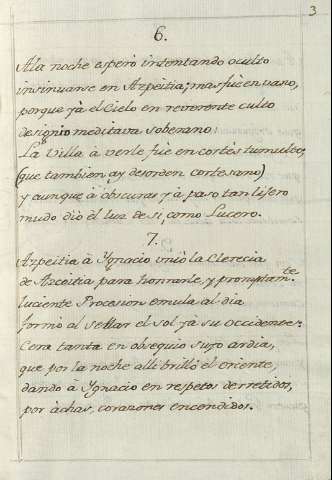 3
6.
A la noche esperó intentando oculto
insinuarse en Azpeitia; mas fue en vano,
porque yà el Cielo en reverente culto
designio meditava soberano:
La Villa à verle fue en cortès tumulto;
(que tambien ay desorden cortesano)
y aunque à obscuras yà paso tan lijero
mudo diò el luz de si, como Lucero.
7.
Azpeitia à Ygnacio uniò la Clerecia
de Azcoitia para honrarle, y promptamte
luciente Procesion emula al dia
formò al sellar el sol ya su occidente:
Cera tanta en obsequio suyo ardia,
que por la noche alli brillò el oriente,
dando à Ygnacio en respetos derretidos,
por àchas, corazones encendidos.